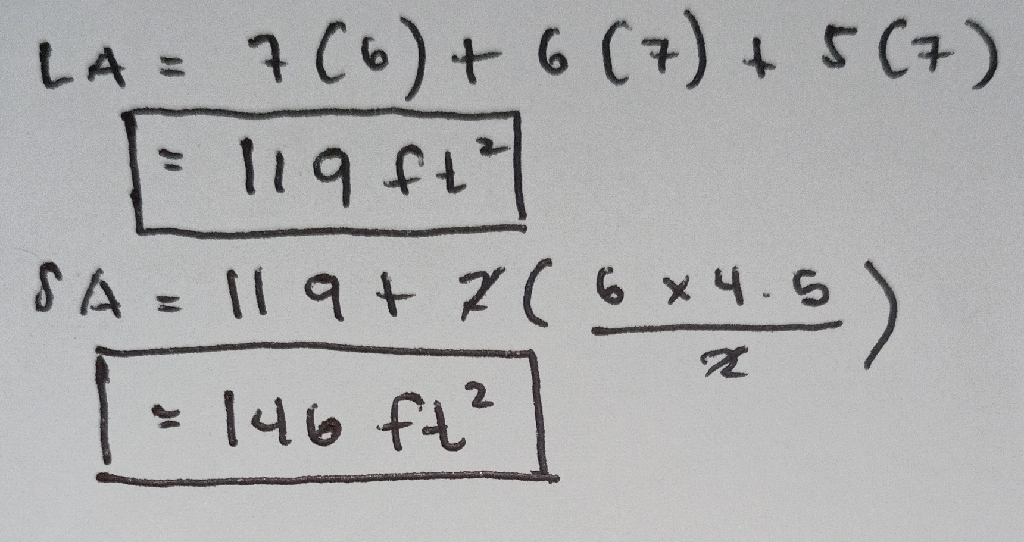 LA = 7(6) + 6(7) + 5(7)
= 119 ft²
SA = 119 + 2( 6 x 4.5 / 2 )
= 146 ft²